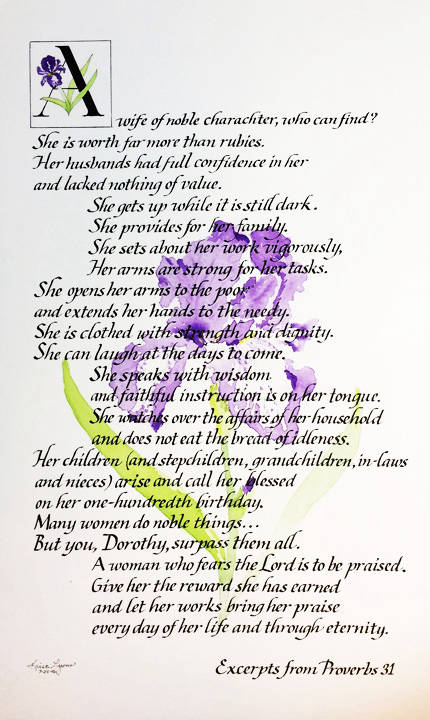 A wife of noble charachter, who can find?
She is worth far more than rubies.
Her husbands had full confidence in her
and lacked nothing of value.
She gets up while it is still dark.
She provides for her family.
She sets about her work vigorously,
Her arms are strong for her tasks.
She opens her arms to the poor
and extends her hands to the needy.
She is clothed with strength and dignity.
She can laugh at the days to come.
She speaks with wisdom
and faithful instruction is on her tongue.
She watches over the affairs of her household
and does not eat the bread of idleness.
Her children (and stepchildren, grandchildren, in-laws
and nieces) arise and call her blessed
on her one-hundredth birthday.
Many women do noble things...
But you, Dorothy, surpass them all.
A woman who fears the Lord is to be praised.
Give her the reward she has earned
and let her works bring her praise
every day of her life and through eternity.
Excerpts from Proverbs 31